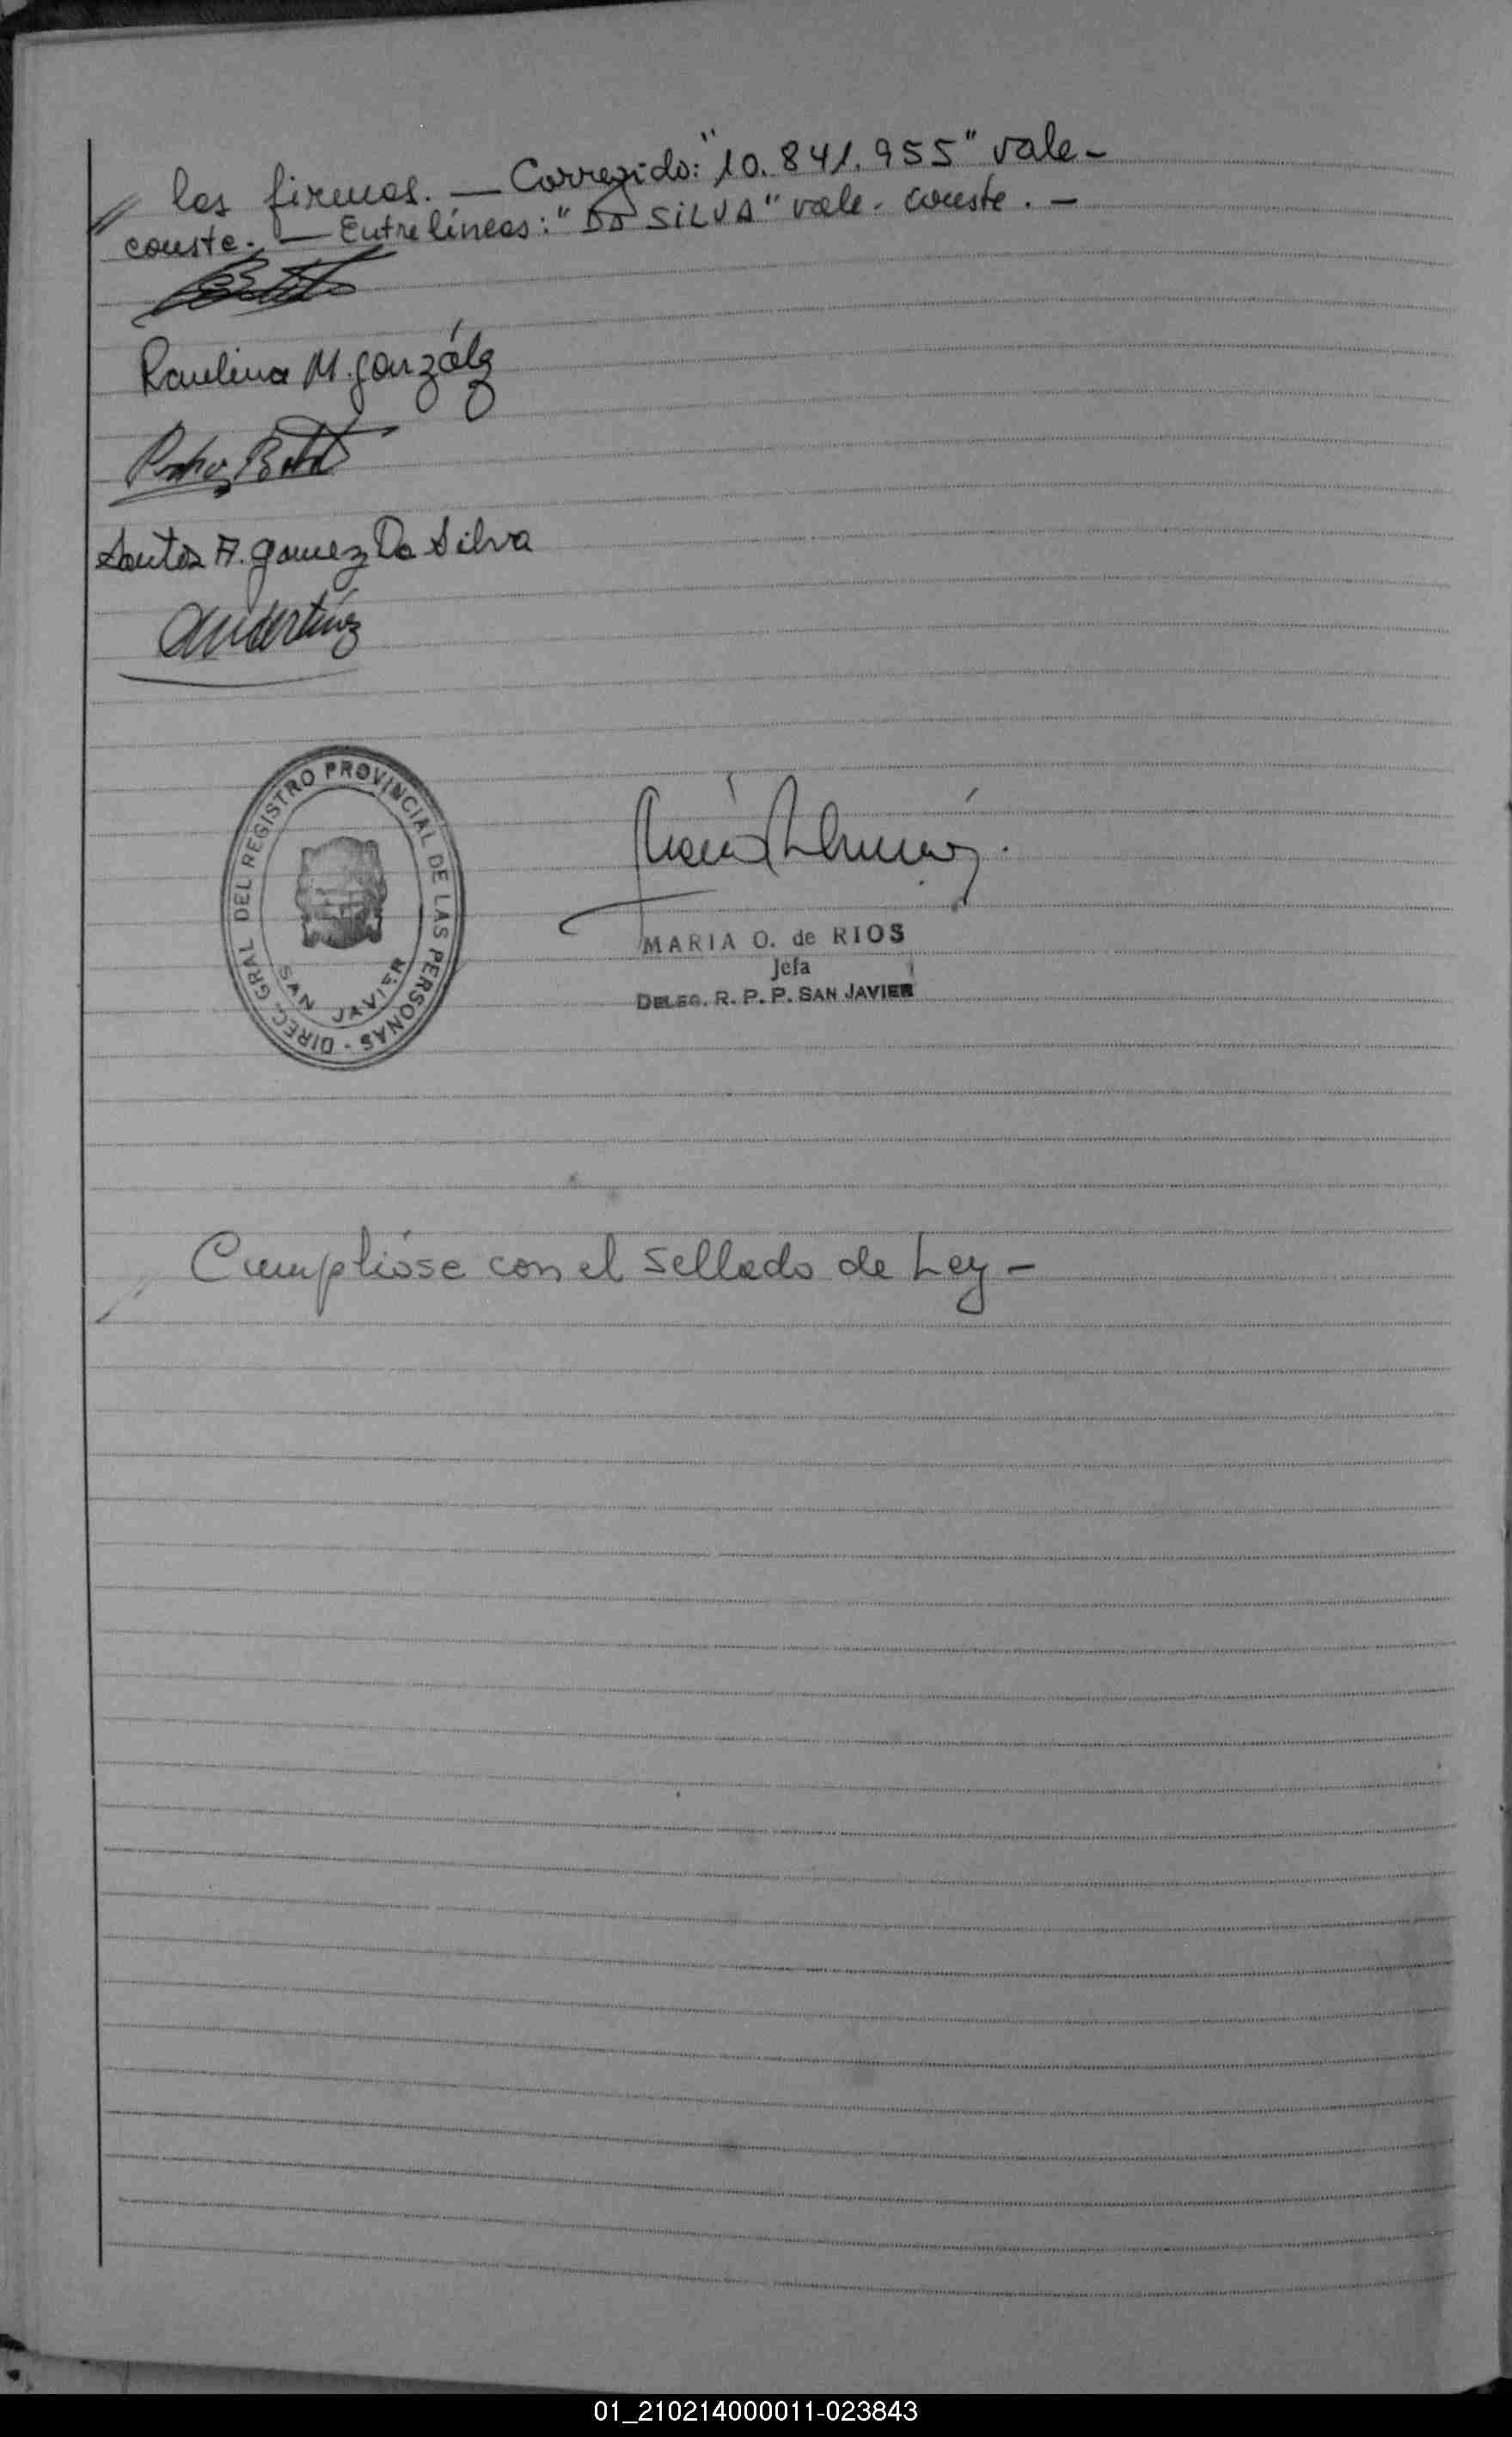 // las firmas. — Corregido: "10.841.955" vale-
conste. — Entrelíneas: "DA SILVA" vale - conste. -
Paulina M. González
Pedro
Santos A. gomez Da Silva
DIREC. GRAL DEL REGISTRO PROVINCIAL DE LAS PERSONAS -
SAN JAVIER
MARIA O. de RIOS
Jefa
DELEG. R. P. P. SAN JAVIER
Cumplióse con el sellado de Ley -
01_210214000011-023843